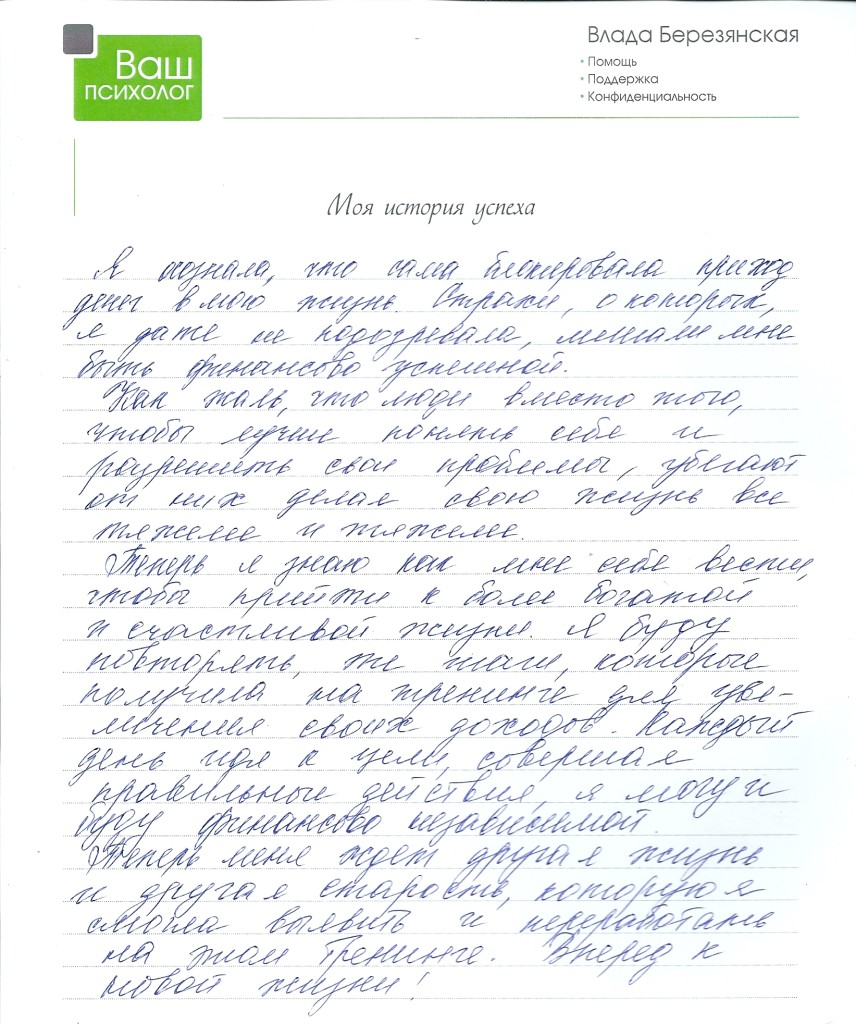 Ваш
психолог
Влада Березянская
• Помощь
• Поддержка
• Конфиденциальность
Моя история успеха
Я осознала, что сама блокировала приход
денег в мою жизнь. Страхи, о которых,
я даже не подозревала, мешали мне
быть финансово успешной.
Как жаль, что люди вместо того,
чтобы лучше понять себя и
разрешить свои проблемы, убегают
от них делая свою жизнь все
тяжелее и тяжелее.
Теперь я знаю как мне себя вести,
чтобы прийти к более богатой
и счастливой жизни. Я буду
повторять, те шаги, которые
получила на тренинге для уве-
личения своих доходов. Каждый
день идя к цели, совершая
правильные действия, я могу и
буду финансово независимой.
Теперь меня ждет другая жизнь
и другая старость, которую я
смогла выявить и переработать
на этом тренинге. Вперед к
новой жизни!